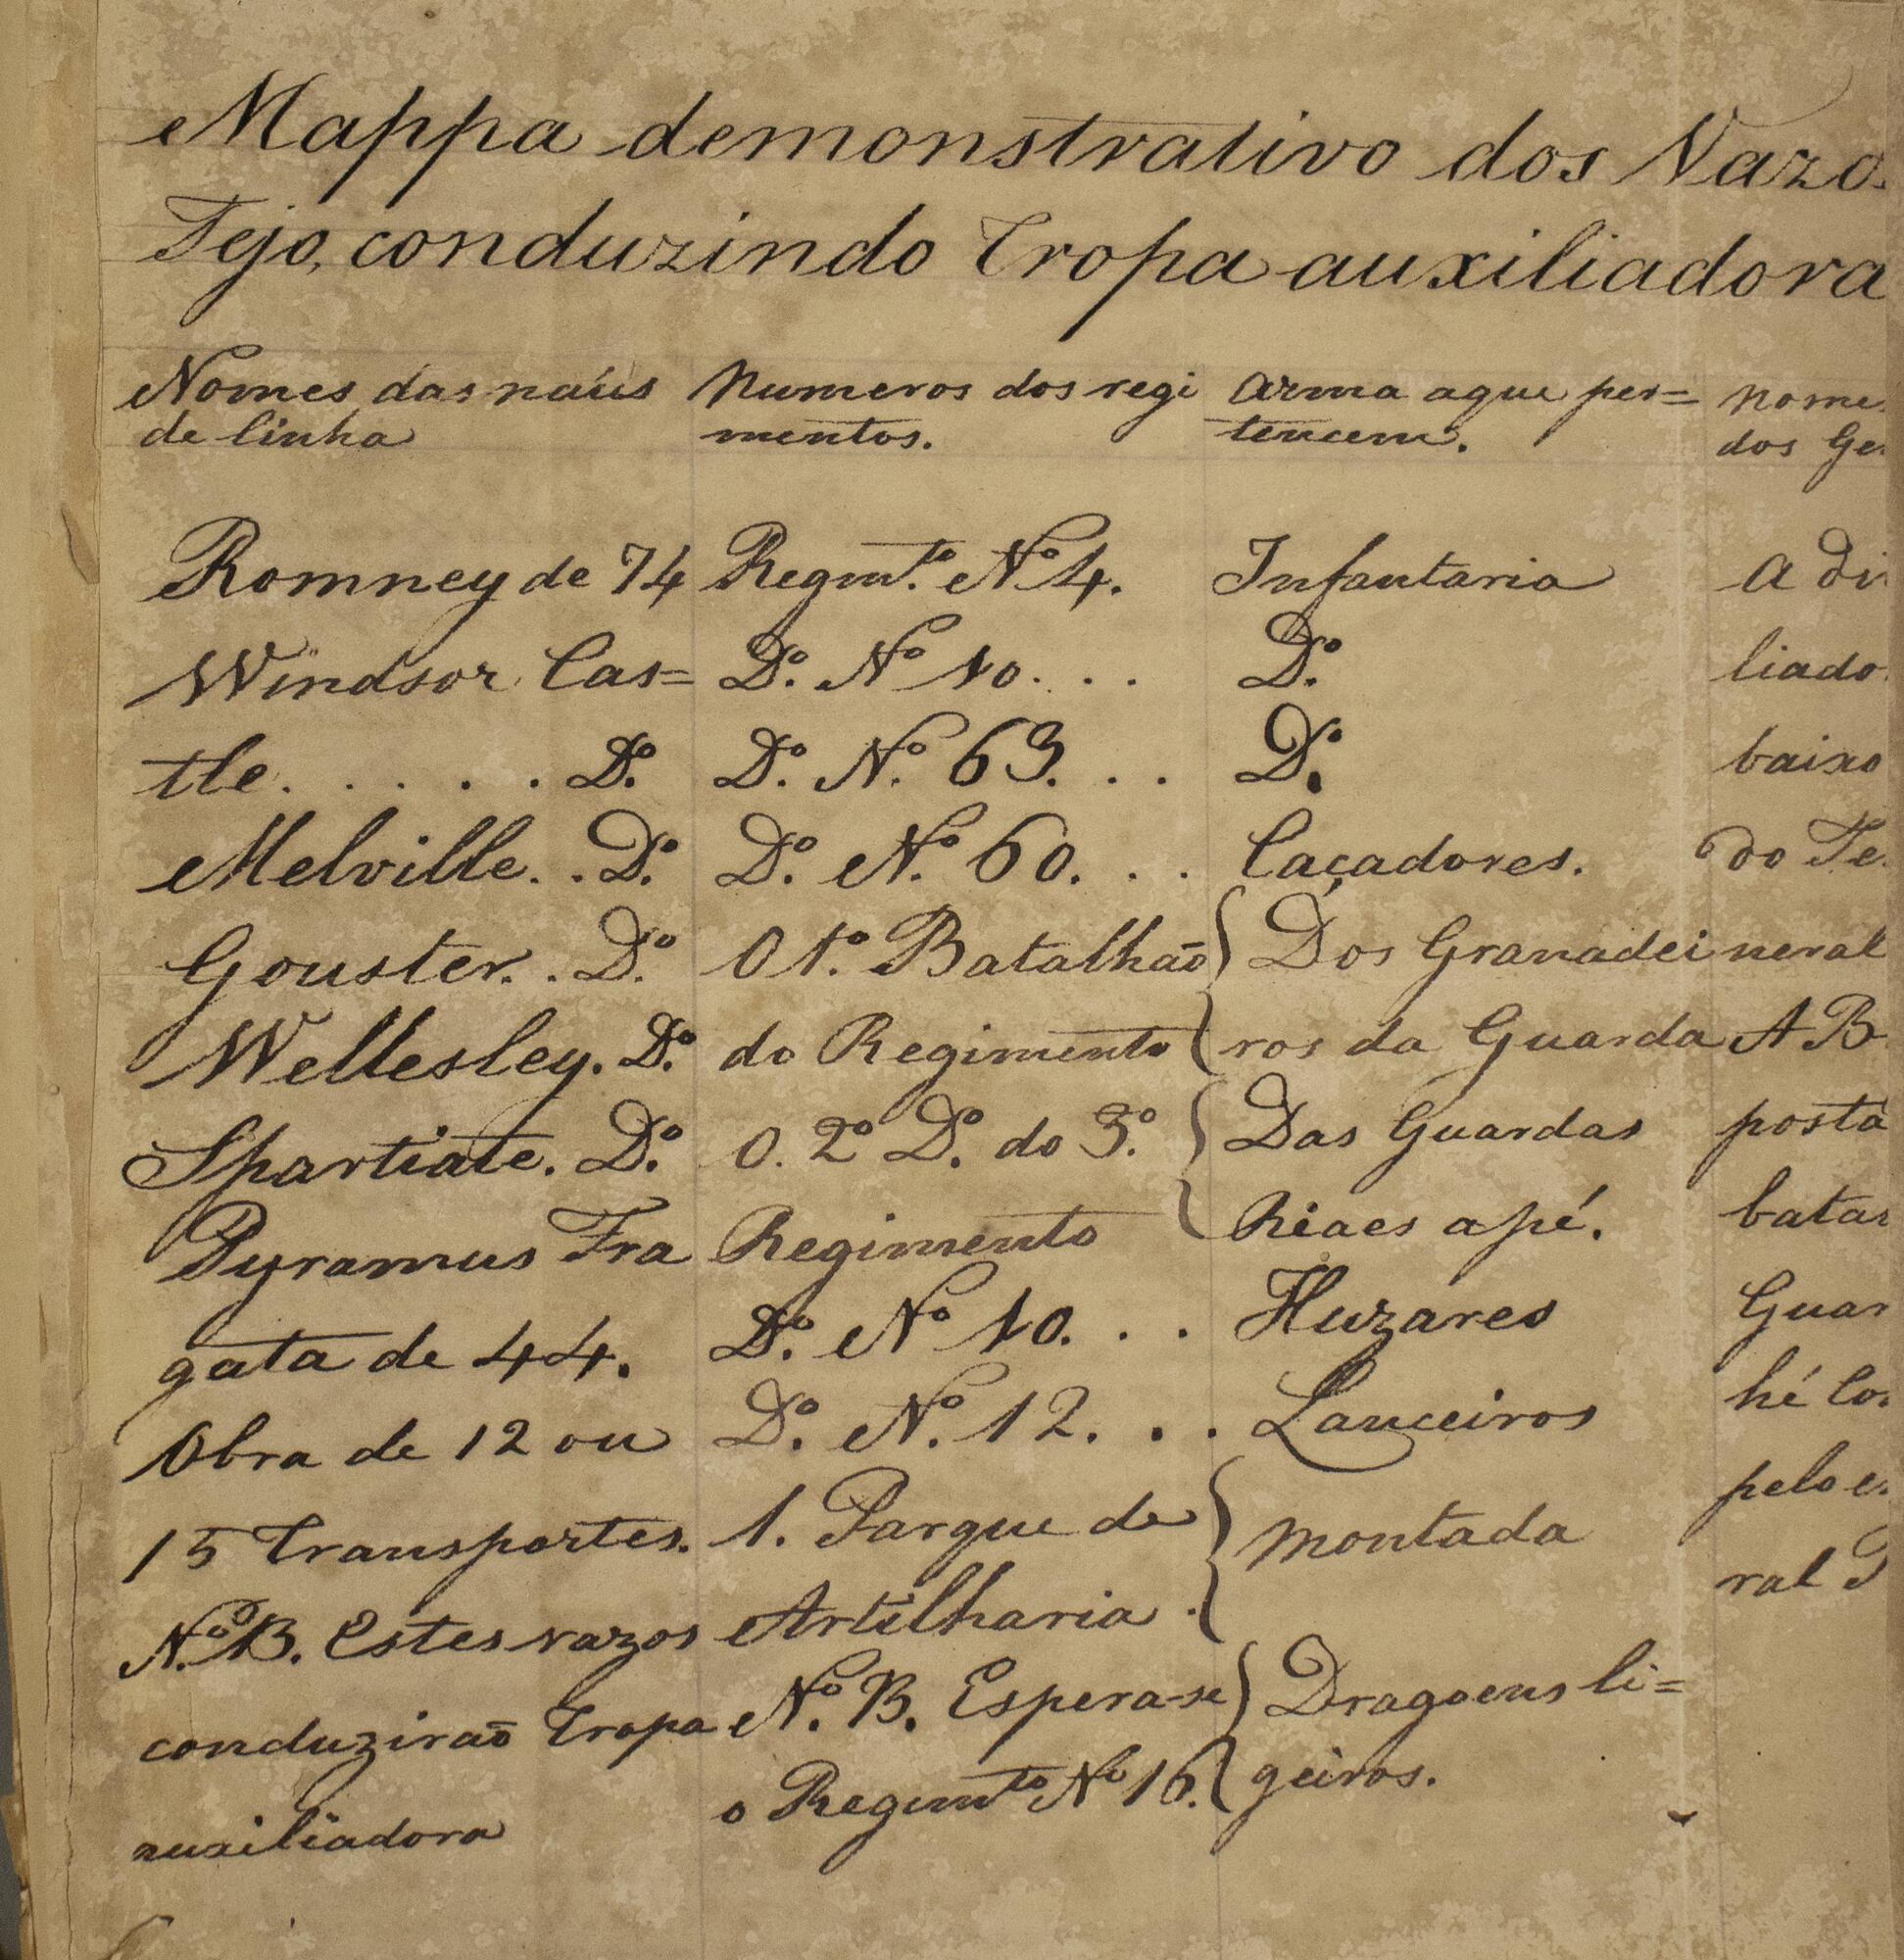 Mappa demonstrativo dos Vazo
Tejo, conduzindo Tropa auxiliadora
Nomes das naús
de linha
Numeros dos regi
mentos.
Arma aque per=
tencem.
Nome
dos Ge
Romney de 74 Regm.to No 4. Infantaria A Di
Windsor Cas= Do. No 10. . . Do. liado
tle. . . . . Do. Do. No. 63. . . Do. baixo
Melville. . Do. Do. No. 60. . . Caçadores. do Te
Gouster. . Do. O 1o. Batalhaõ Dos Granadei neral
Wellesley. Do. do Regimento ros da Guarda A B
Spartiate. Do. O. 2o Do. do 3o. Das Guardas posta
Pyramus Fra Regimento Reaes apé. batar
gata de 44. Do. No 10. . . Huzares Guar
Obra de 12 ou Do. No. 12. . . Lanceiros hé Co
15 Transportes. 1. Parque de Montada pelo e
N.oB. Estes vazos Artelharia. ral
conduziraõ Tropa No. B. Espera-se Dragoens li=
auxiliadora o Regimto No 16. geiros.